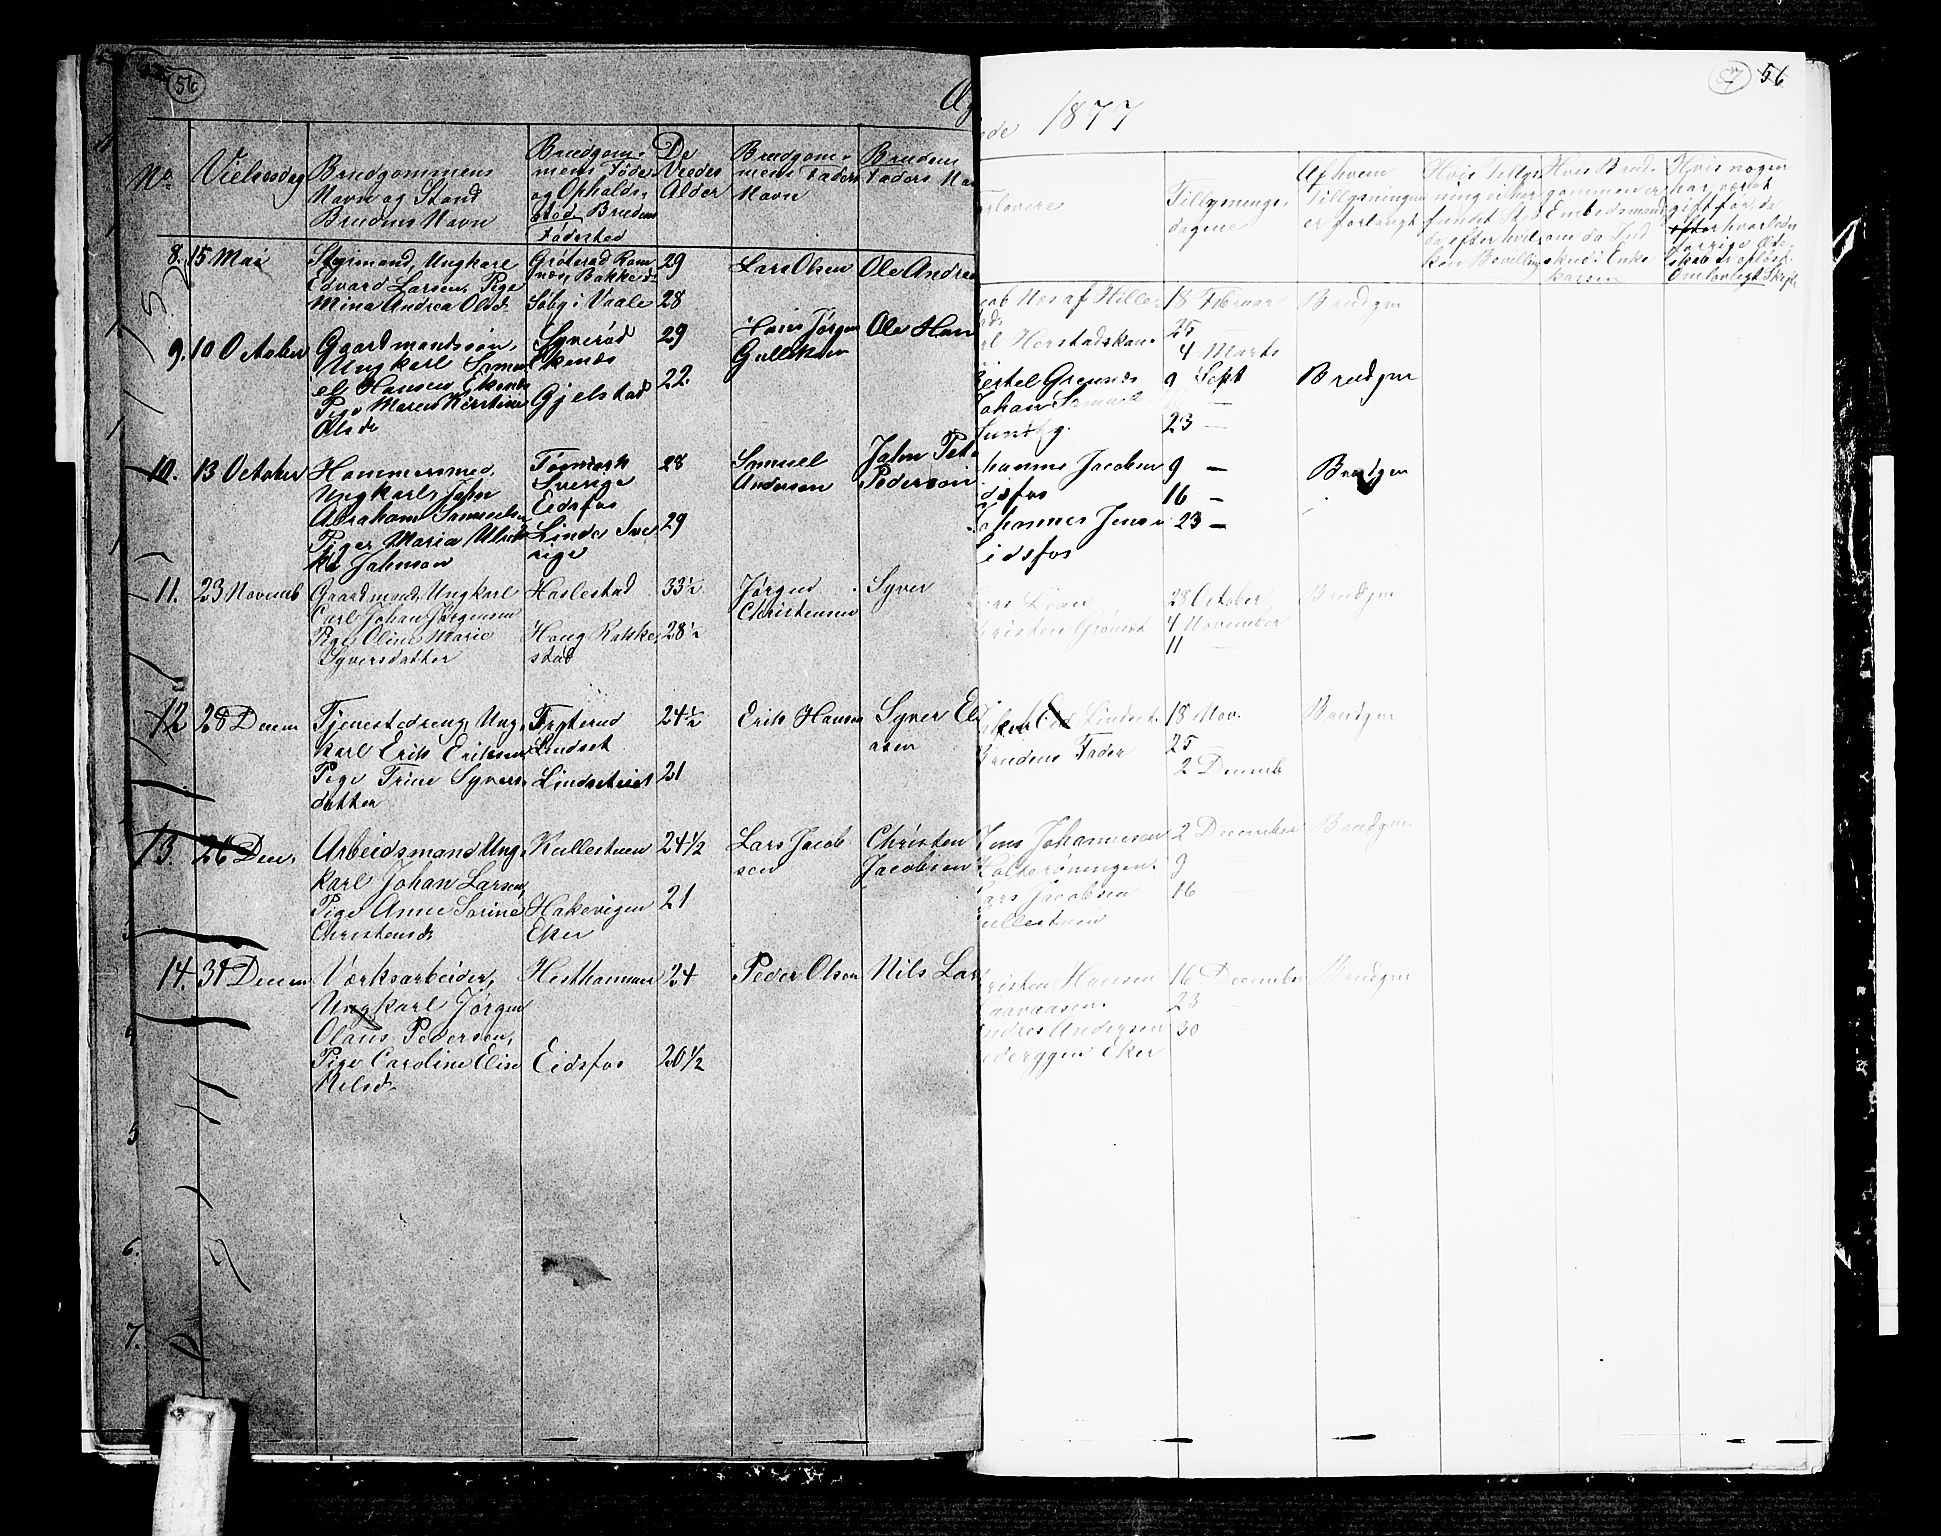 56
57 56
1877
No
Vielsesdag
Brudgommens
Navn og Stand
Brudens Navn
Brudgom-
mens Føde-
og Opholds-
sted, Brudens
Fødested
De
Viedes
Alder
Brudgom-
mens Faders
Navn
Brudens
Faders Na
Forlovere
Tillysnings-
dagene
Af hvem
Tillysningen
er forlangt
Hvis Tillys
ning ei har
fundet Sted
da efter hvil-
ken Bevilling
Hvis Brud-
gommen er
Embedsmand
om da Ind
skud i Enke
kassen
Hvis nogen
har været
gift før, da
hvorledes
forrige Ægte-
skab er opløst
Om lovligt Skifte
8. 15 Mai
Styrmand, Ungkarl
Edvard Larsen, Pige
Mina Andrea Olsd.
Grøterød Ram
næs, Bakke
Søby i Vaale
29
28
Lars Olsen
Ole Andrea
18 Februar
25
4 Marts
Brudgm
9. 10 October
Gaardmandssøn,
Ungkarl
Hansen Ekenæs
Pige Maren Kirstine
Olsdr
Syverød
Ekenæs
Gjelstad
29
22.
Hans Jørgen
Gulliksen
Ole Han
Johan Samuel
Sundby.
9 Sept
16 —
23 —
Brudgm
10. 13 October
Hammersmed,
Ungkarl John
Abraham Samuelsen
Pige Maria Ulrik
ka Johnson
Sverige
Eidsfos
Linde Sve
rige
28
29
Samuel
Anderson
John Pet
Pederson
hannes Jacobsen
idsfos
Johannes Jens
Eidsfos
9 —
16 —
23 —
Brudgm
11. 23 Novemb
Gaardmand, Ungkarl
Carl Johan Jørgensen
Pige Oline Marie
Syversdatter
Haslestad
Haug Rakke
stad
33½
28½
Jørgen
Christensen
Syver
Lars Lian
hristen Grønset
28 October
4 November
11 —
Brudgm
12 28 Decem
Tjenestedreng, Ung-
karl Erik Eriksen
Pige Trine Syvers-
datter
Frøterud
Lindset
Lindseteiet
24½
21
Erik Hansen
Syver El
asen
Lindset.
Brudens Fader
18 Nov.
25 —
2 Decemb
Brudgm
13. 26 Dec.
Arbeidsmand Ung-
karl Johan Larsen,
Pige Anne Sorine
Christensd.
Kullestuen
Hakavigen
Eker
24½
21
Lars Jacob
sen
Christen
Jacobsen
Hans Johannesen
Holterøningen.
Lars Jacobsen
ullestuen
2 December
9 —
16 —
Brudgm.
14. 31 Decem
Værksarbeider,
Ungkarl Jørgen
Olaus Pedersen,
Pige Caroline Elise
Nilsd.
Hesthammer
Eidsfos
24
20½
Peder Olsen
Nils Lar
hristen Hansen
aavaasen.
Andres Andersen
ederggen Eker
16 December
23 —
30 —
Brudgm
5
6.
7.